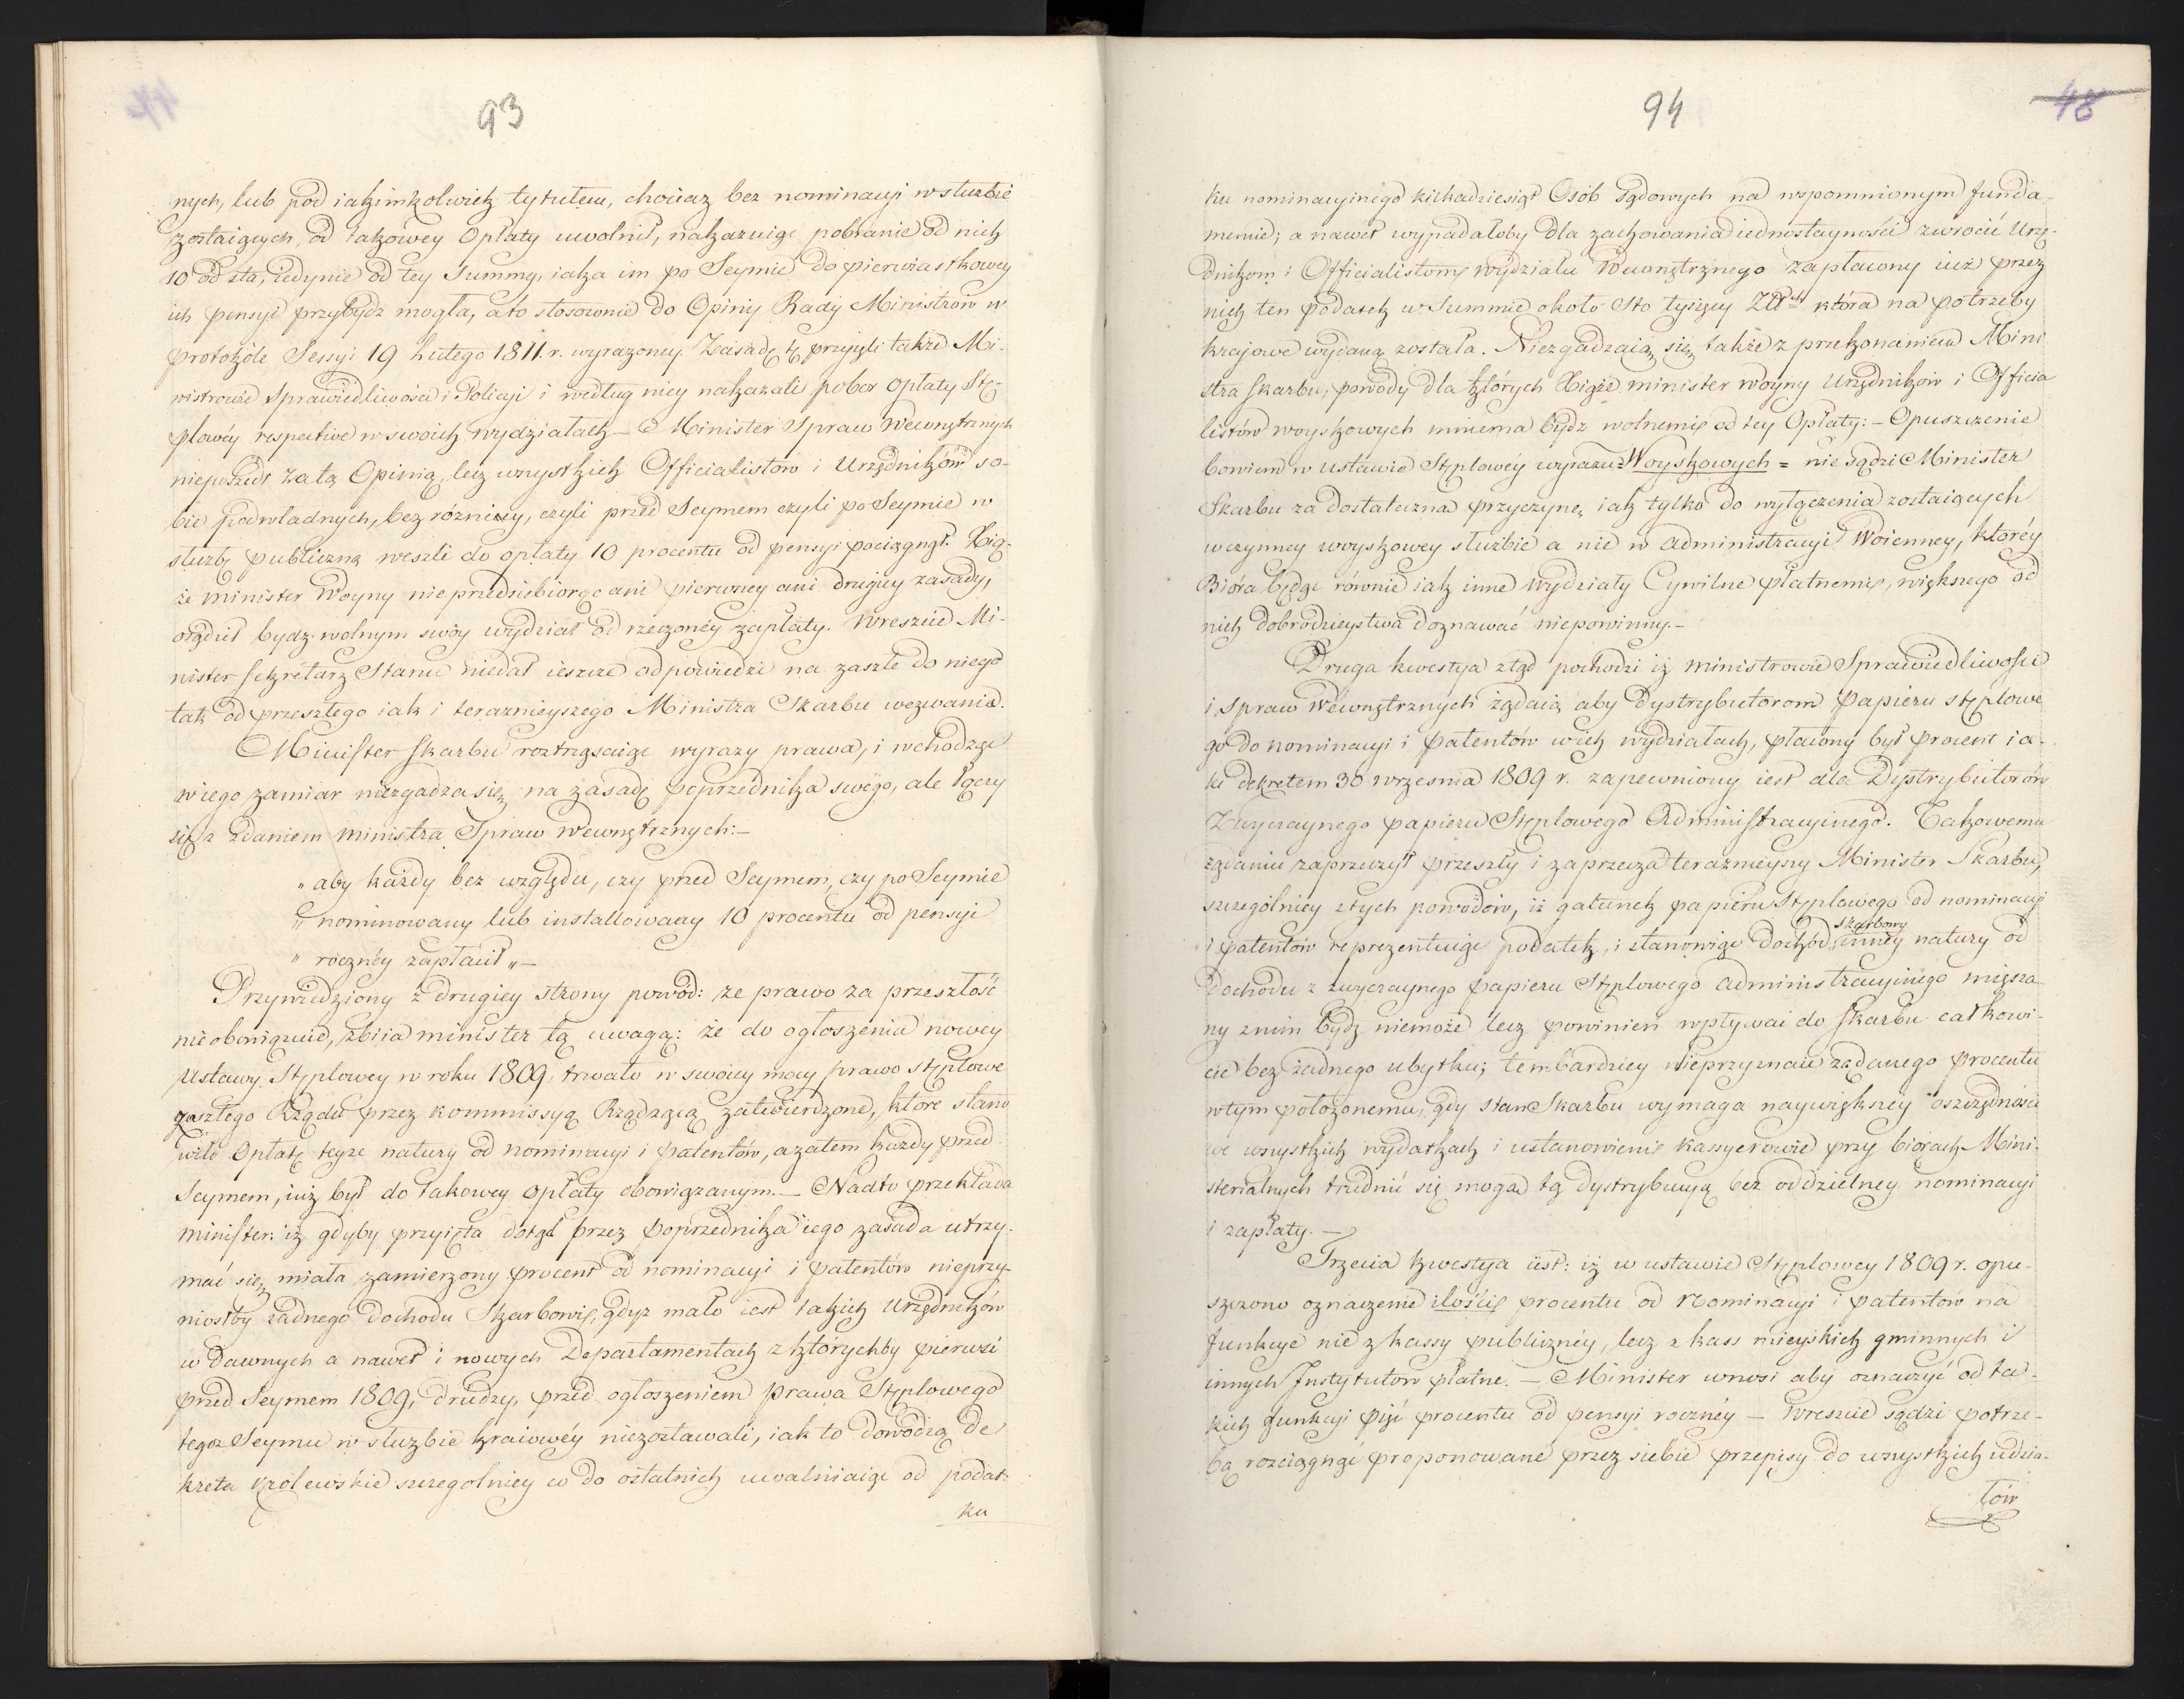 93
nych, lub pod iakimkolwiek tytułem, chociaz bez nominacyi w służbie
zostaiących, od takowey Opłaty uwolnił, nakazuiąc pobranie od nich
10 od sta, iedynie od tey Summy, iaka im po Seymie do pierwiastkowey
ich pensyi przybydz mogła, a to stosownie do Opinij Rady Ministrów w
protokóle Sessyi 19 Lutego 1811. r. wyrazoney. Zasadę tę przyięli także Mi-
nistrowie Sprawiedliwości i Policyi i według niey nakazali pobor opłaty Stę-
plowéy respective w swoich wydziałach – Minister Spraw Wewnętrznych
nieposzedł za tą Opinią, lecz wszystkich Officialistów i Urzędników so-
bie podwładnych, bez różnicy, czyli przed Seymem czyli po Seymie w
służbę publiczną weszli do opłaty 10 procentu od pensyi pociągnął. Xią-
że Minister Woyny nieprzedsiębiorąc ani pierwszey ani drugiey zasady,
osądził bydz wolnym swóy wydział od rzeczonéy zapłaty. Wreszcie Mi-
nister Sekretarz Stanu niedał ieszcze odpowiedzi na zaszłe do niego
tak od przeszłego iak i teraznieyszego Ministra Skarbu wezwania.
Minister Skarbu roztrząsaiąc wyrazy prawa, i wchodząc
w iego zamiar niezgadza się na zasadę poprzednika swego, ale łączy
się z zdaniem Ministra Spraw Wewnętrznych: –
„ aby każdy bez względu, czy przed Seymem, czy po Seymie
„ nominowany lub installowany 10 procentu od pensyi
„ roczney zapłacił „ –
Przywiedziony z drugiey strony powód: ze prawo za przeszłość
nieobowiązuie, zbiia minister tą uwagą: że do ogłoszenia nowey
Ustawy Stęplowey w roku 1809, trwało w swoiey mocy prawo stęplowe
zaszłego Rządu przez Kommissyą Rządzącą zatwierdzone, które stano
wiło Opłatę teyże natury od nominacyi i patentów, azatem każdy przed
Seymem, iuż był do takowey opłaty obowiązanym. – Nadto przekłada
minister: iż gdyby przyięta dotąd przez poprzednika iego zasada utrzy-
mać się miała zamierzony procent od nominacyi i patentów nieprzy-
niosłby żadnego dochodu Skarbowi, gdyż mało iest takich Urzędników
w dawnych a nawet i nowych Departamentach z którychby pierwsi
przed Seymem 1809, drudzy, przed ogłoszeniem prawa Stęplowego
tegoż Seymu w służbie kraiowéy niezostawali, iak to dowodzą De
kreta Królewskie szczegolniey co do ostatnich uwalniaiąc od podat-
ku
94
48
ku nominacyinego kilkadziesiąt Osób sądowych na wspomnionym funda-
mencie; a nawet wypadałoby dla zachowania iednostayności zwrócić Urzę-
dnikom i Officialistom wydziału Wewnętrznego zapłacony iuż przez
nich ten podatek w Summie około Sto tysięcy Złp. która na potrzeby
krajowe wydaną została. Niezgadzaią się także z przekonaniem Mini
stra Skarbu, powody dla których Xiąże minister Woyny Urzędników i Officia
listów woyskowych mniema bydz wolnemi od tey Opłaty: – Opuszczenie
bowiem w ustawie Stęplowéy wyrazu = Woyskowych = nie sądzi Minister
Skarbu za dostateczna przyczynę iak tylko do wyłączenia zostaiących
w czynney woyskowey służbie a nie w administracyi Woienney, któréy
Bióra będąc równie iak inne Wydziały Cywilne płatnemi, większego od
nich dobrodzieystwa doznawać niepowinny. –
Druga kwestya ztąd pochodzi iż ministrowie Sprawiedliwości
i Spraw Wewnętrznych żądaią aby Dystrybutorom papieru stęplowe
go do nominacyi i patentów w ich wydziałach, płacony był procent ia-
ki dekretem 30 września 1809 r. zapewniony iest dla Dystrybutorów
Zwyczaynego papieru Stęplowego Administracyinego. Takowemu
żądaniu zaprzeczył przeszły i zaprzecza teraznieyszy Minister Skarbu,
szczególniey z tych powodów, iż gatunek papieru Stęplowego od nominacyi
i patentów reprezentuiąc podatek, i stanowiąc dochód, Skarbowy inney natury od
Dochodu z zwyczaynego papieru Stęplowego administracyinego miesza
ny z nim bydz niemoże lecz powinien wpływać do Skarbu całkowi-
cie bez żadnego ubytku; tembardziey nieprzyznaie żądanego procentu
w tym położeniu, gdy stan Skarbu wymaga naywiększey oszczędności
we wszystkich wydatkach i ustanowieni Kassyerowie przy biórach Mini-
sterialnych trudnić się mogą tą dystrybucyą bez oddzielney nominacyi
i zapłaty. –
Trzecia kwestya iest: iż w ustawie Stęplowey 1809 r. opu-
szczono oznaczenie ilości procentu od nominacyi i patentów na
funkcye nie z kassy publiczney, lecz z kass mieyskich gminnych i
innych Instytutów płatne. – Minister wnosi aby oznaczyć od ta-
kich funkcyi pięć procentu od pensyi roczney – Wreszcie sądzi potrze-
bą rozciągnąć proponowane przez siebie przepisy do wszystkich udzia-
łów